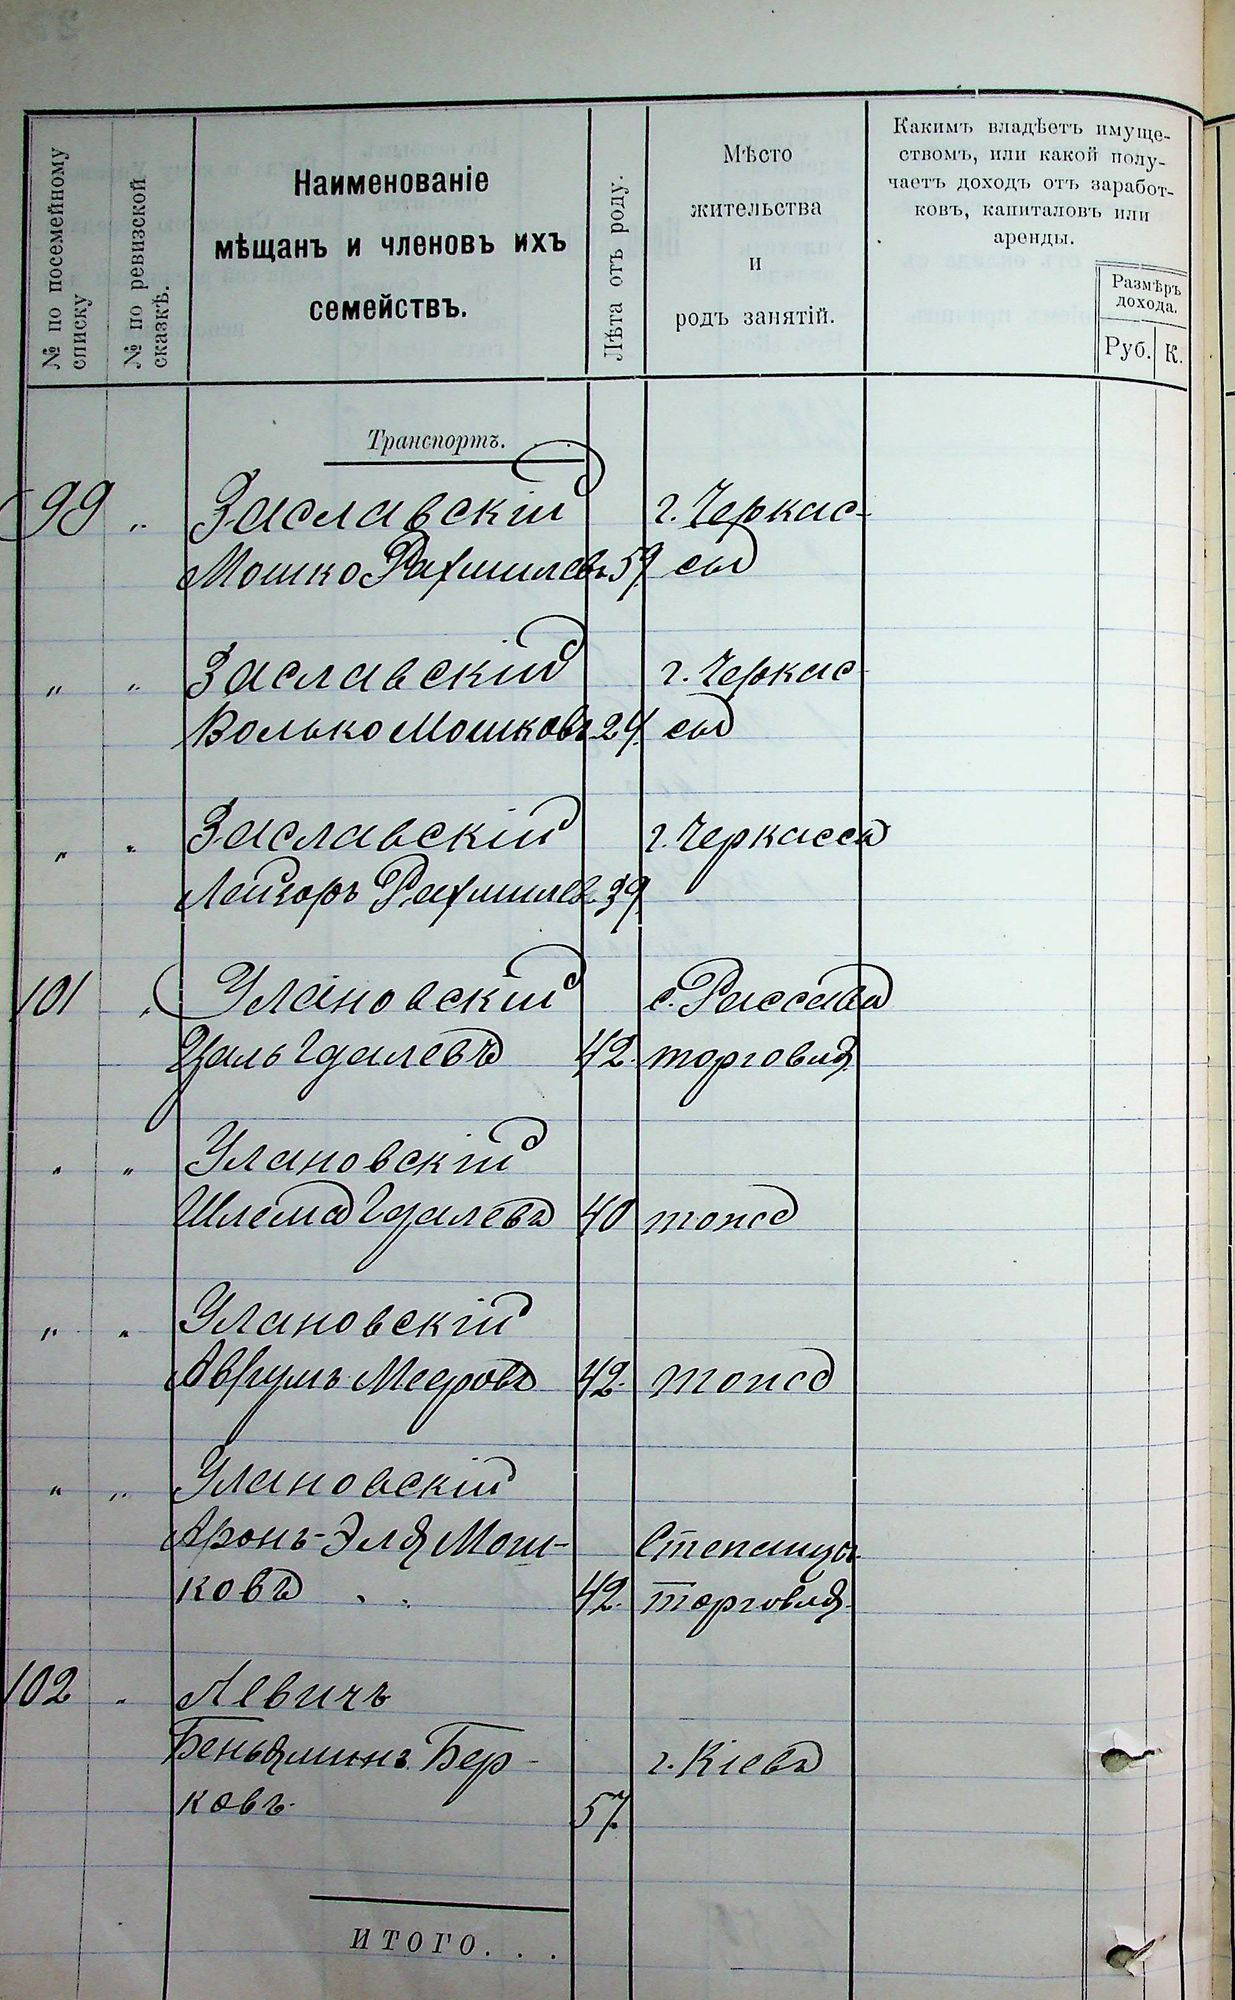 № по посемейному
списку
№ по ревизской
сказкѣ.
Наименованіе
мѣщанъ и членовъ ихъ
семействъ.
Лѣта отъ роду.
Мѣсто
жительства
и
родъ занятій.
Какимъ владѣетъ имуще-
ствомъ, или какой полу-
чаетъ доходъ отъ заработ-
ковъ, капиталовъ или
аренды.
Размѣръ
дохода.
Руб. К.
Транспортъ. . .
99 „ Заславскій г. Черкас-
Мошко Рахмилевъ 59 сы
„ „ Заславскій г. Черкас-
Волько Мошковъ 24 сы
„ „ Заславскій г. Черкассы
Лейзоръ Рахмилев. 39
101 „ Улановскій с. Рассава
Цаль Гдалевъ 42. торговля
„ „ Улановскій
Шлема Гдалевъ 40 тоже
„ „ Улановскій
Аврумъ Мееровъ 42. тоже
„ „ Улановскій
Аронъ-Эля Мош- Степанцы
ковъ . . 42. торговля.
102 „ Левичъ
Беньяминъ Бер- г. Кіевъ
ковъ. 57.
ИТОГО. . .